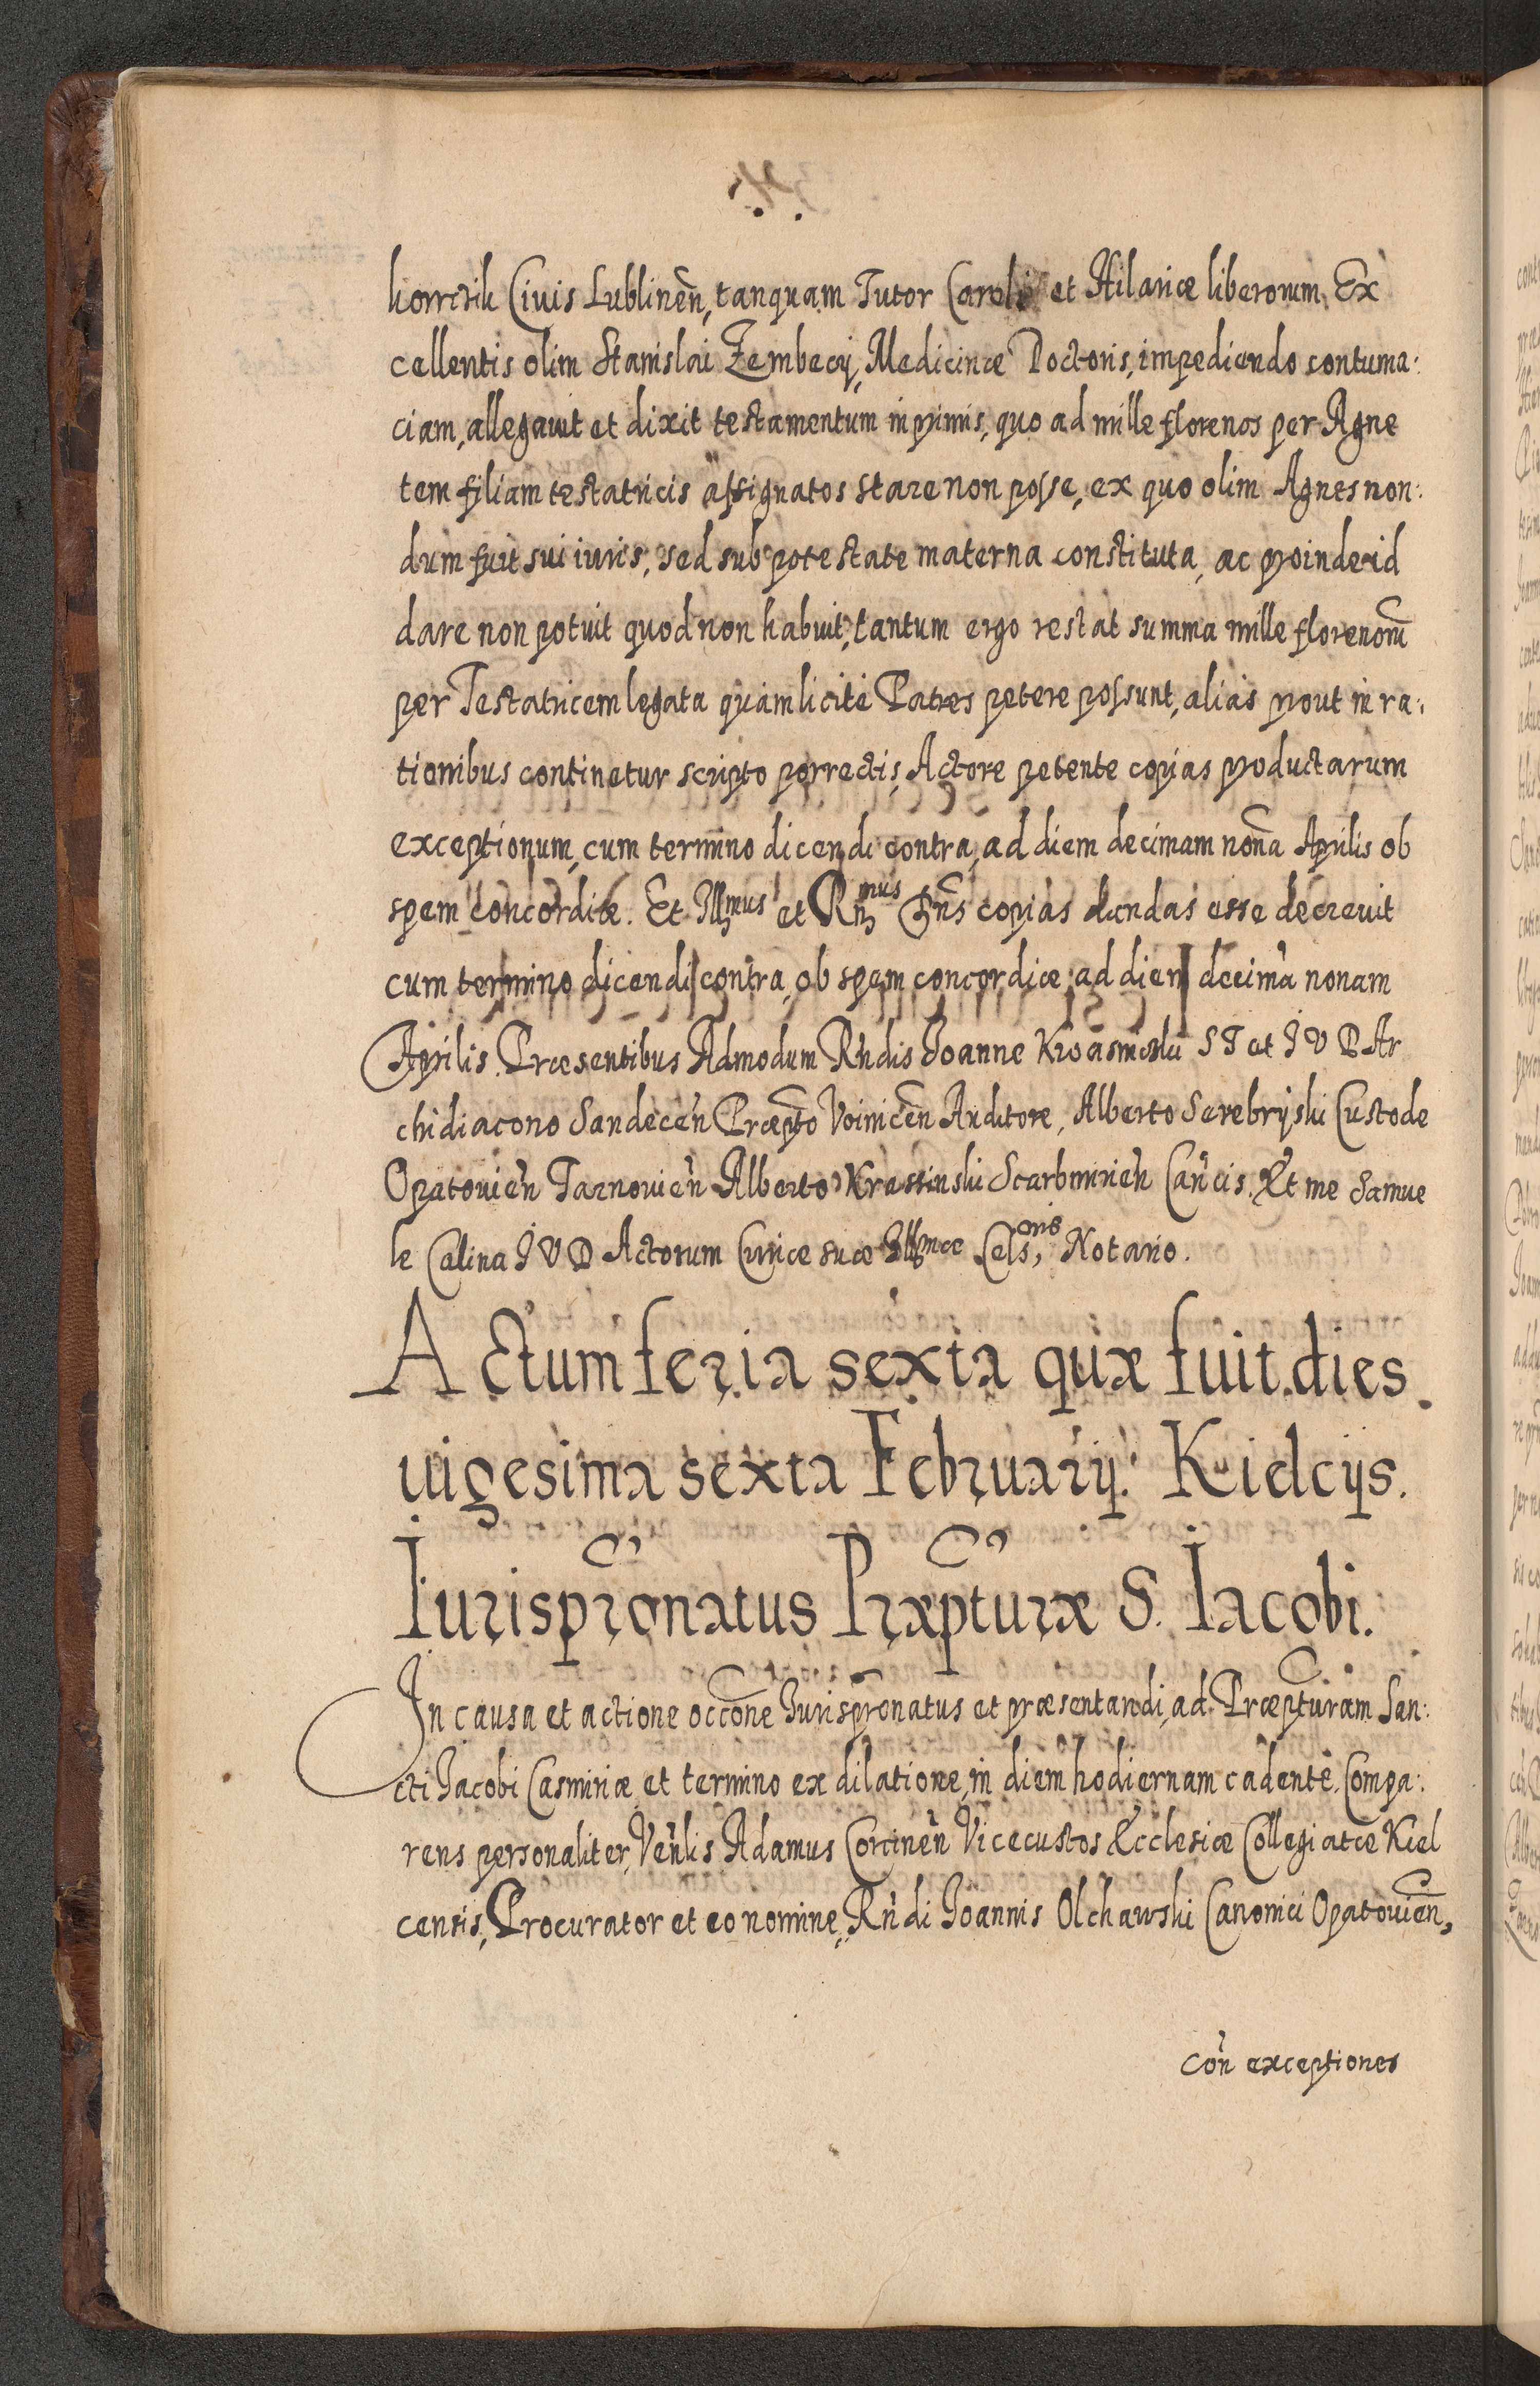 Civis Lublinen̄, tanquam Tutor Caroli et Hilariæ liberorum Ex
cellentis olim Stanislai Zembecij, Medicinæ Doctoris, impediendo contuma:
ciam, allegavit et dixit testamentum in primis, quo ad mille florenos per Agne
tem filiam testatricis assignatos stare non posse, ex quo olim Agnes non:
dum fuit sui iuris, sed sub potestate materna constituta, ac proinde id
dare non potuit quod non habuit, tantum ergo restat summa mille florenorū
per Testatricem legata quam licité Patres petere possunt, aliàs prout in ra:
tionibus continetur scripto porrectis, Actore petente copias productarum
exceptionum, cum termino dicendi contra, ad diem decimam nonā Aprilis ob
spem concordiæ. Et Illmus et Rn̄mus Pn̄s copias dandas esse decrevit
cum termino dicendi contra, ob spem concordiæ ad diem decimā nonam
Aprilis. Præsentibus Admodum Rn̄dis Joanne S T et J V D Ar
chidiacono Sandecen̄ Præpto Voinicen̄ Auditore, Alberto Serebryski Custode
Opatovien̄ Tarnovien̄ Alberto Krassinski Scarbimirien̄ Can̄cis. Et me Samue
le Calina J V D Actorum Curiæ suæ Illmæ Cels, nis Notario.
Actum feria sexta quæ fuit dies
uigesima sexta Februarij. Kielcijs.
Iurisprōnatus Præpturæ S. Iacobi.
In causa et actione occōne Jurisprōnatus et præsentandi, ad Præpturam San:
cti Jacobi Casimiriæ et termino ex dilatione, in diem hodiernam cadente. Compa:
rens personaliter, Ven̄lis Adamus Corcinen̄ Vicecustos Ecclesiæ Collegiatæ Kiel
censis, Procurator et eo nomine, Rn̄di Joannis Olchawski Canonici Opatovien̄,
con̄ exceptiones